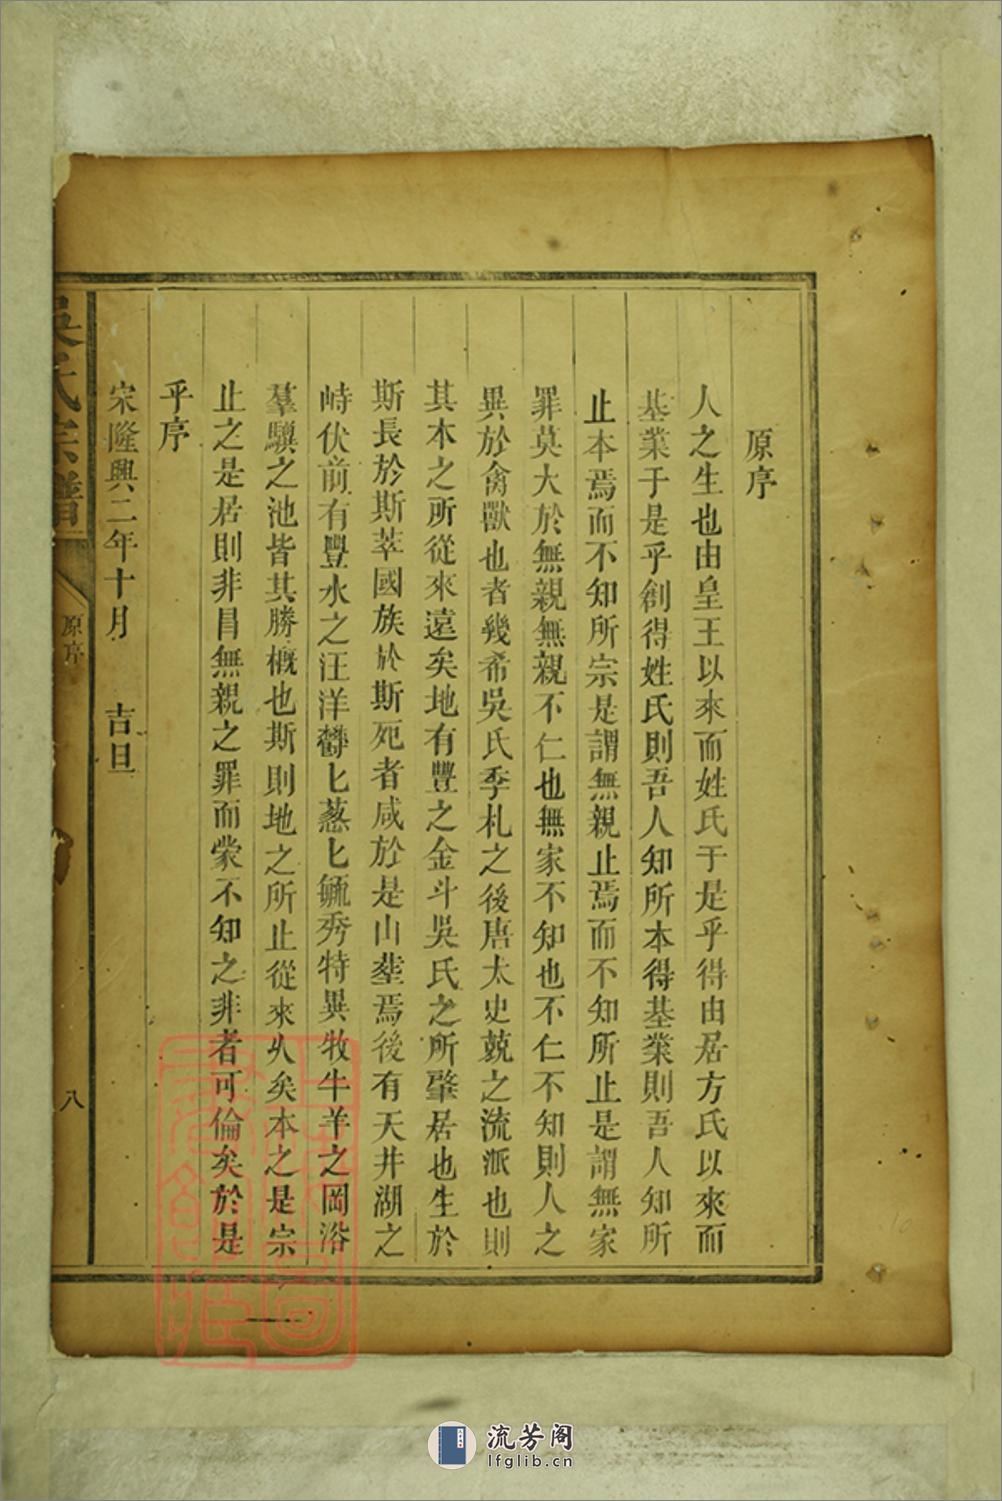 原序
人之生也由皇王以來而姓氏于是乎得由居方氏以來而
基業于是乎創得姓氏則吾人知所本得基業則吾人知所
止本焉而不知所宗是謂無親止焉而不知所止是謂無家
罪莫大於無親無親不仁也無家不知也不仁不知則人之
異於禽獸也者幾希吳氏季札之後唐太史兢之流派也則
其本之所從來遠矣地有豐之金斗吳氏之所肇居也生於
斯長於斯萃國族於斯死者咸於是山塟焉後有天井湖之
峙伏前有豐水之汪洋欝匕葱匕毓秀特異牧牛羊之岡浴
羣驥之池皆其勝概也斯則地之所止從來乆矣本之是宗
止之是居則非昌無親之罪而蒙不知之非者可倫矣於是
乎序
宋隆興二年十月 吉旦
吳氏宗譜
原序
八
流芳阁
lfglib.cn